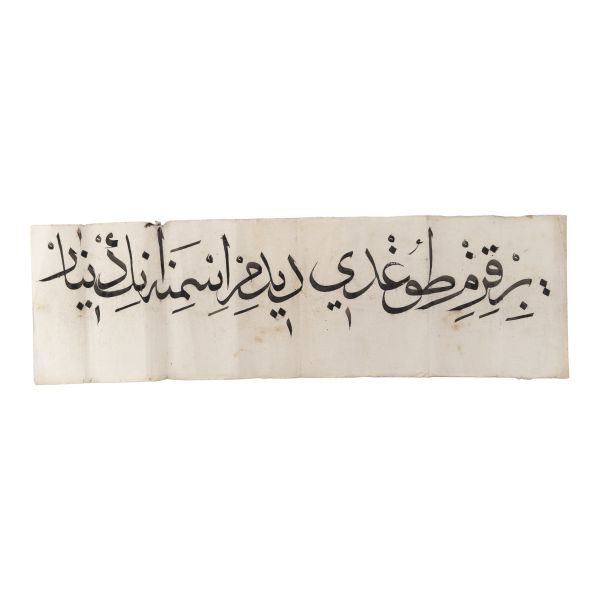 بِرْ قِزِمْ طُوغْدِي دِيدِمْ اِسْمِنَه اَنِكْ دِينَارْ